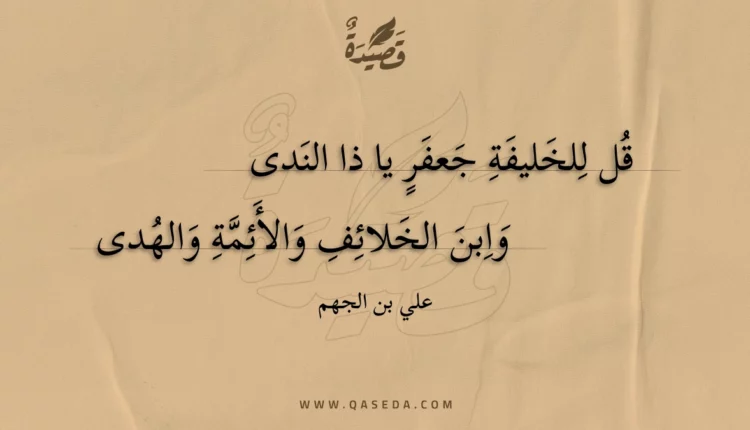 قَصِيدَةٌ
قُل لِلخَليفَةِ جَعفَرٍ يا ذا النَدى
وَاِبنَ الخَلائِفِ وَالأَئِمَّةِ وَالهُدى
علي بن الجهم
WWW.QASEDA.COM